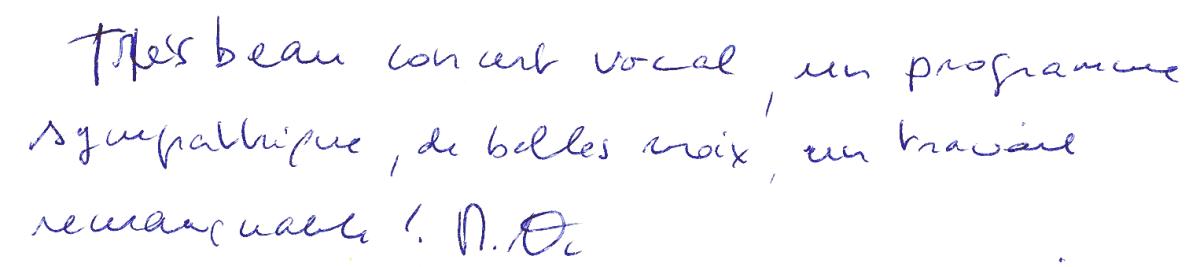 Très beau concert vocal, un programme
sympathique, de belles voix, un travail
remarquable !